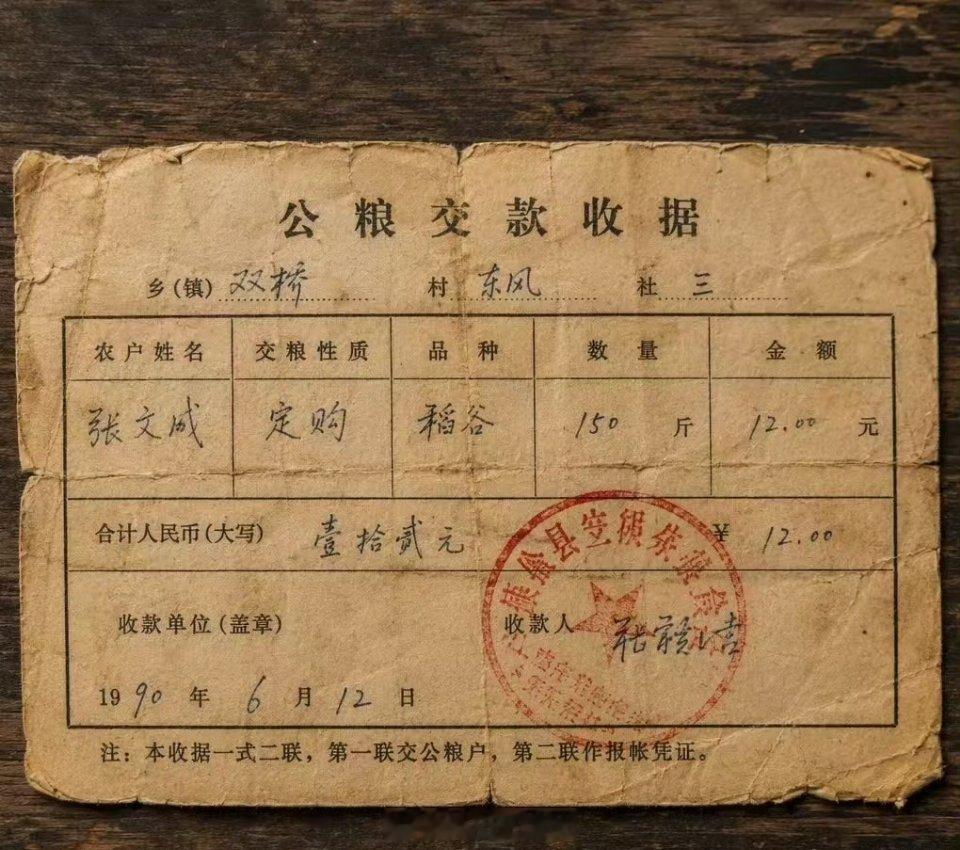 公粮交款收据
乡(镇) 双桥 村 东风 社 三
农户姓名 交粮性质 品种 数量 金额
张文成 定购 稻谷 150 斤 12.00 元
合计人民币(大写) 壹拾贰元 ¥ 12.00
收款单位(盖章) 收款人
1990年6月12日
注：本收据一式二联，第一联交公粮户，第二联作报帐凭证。